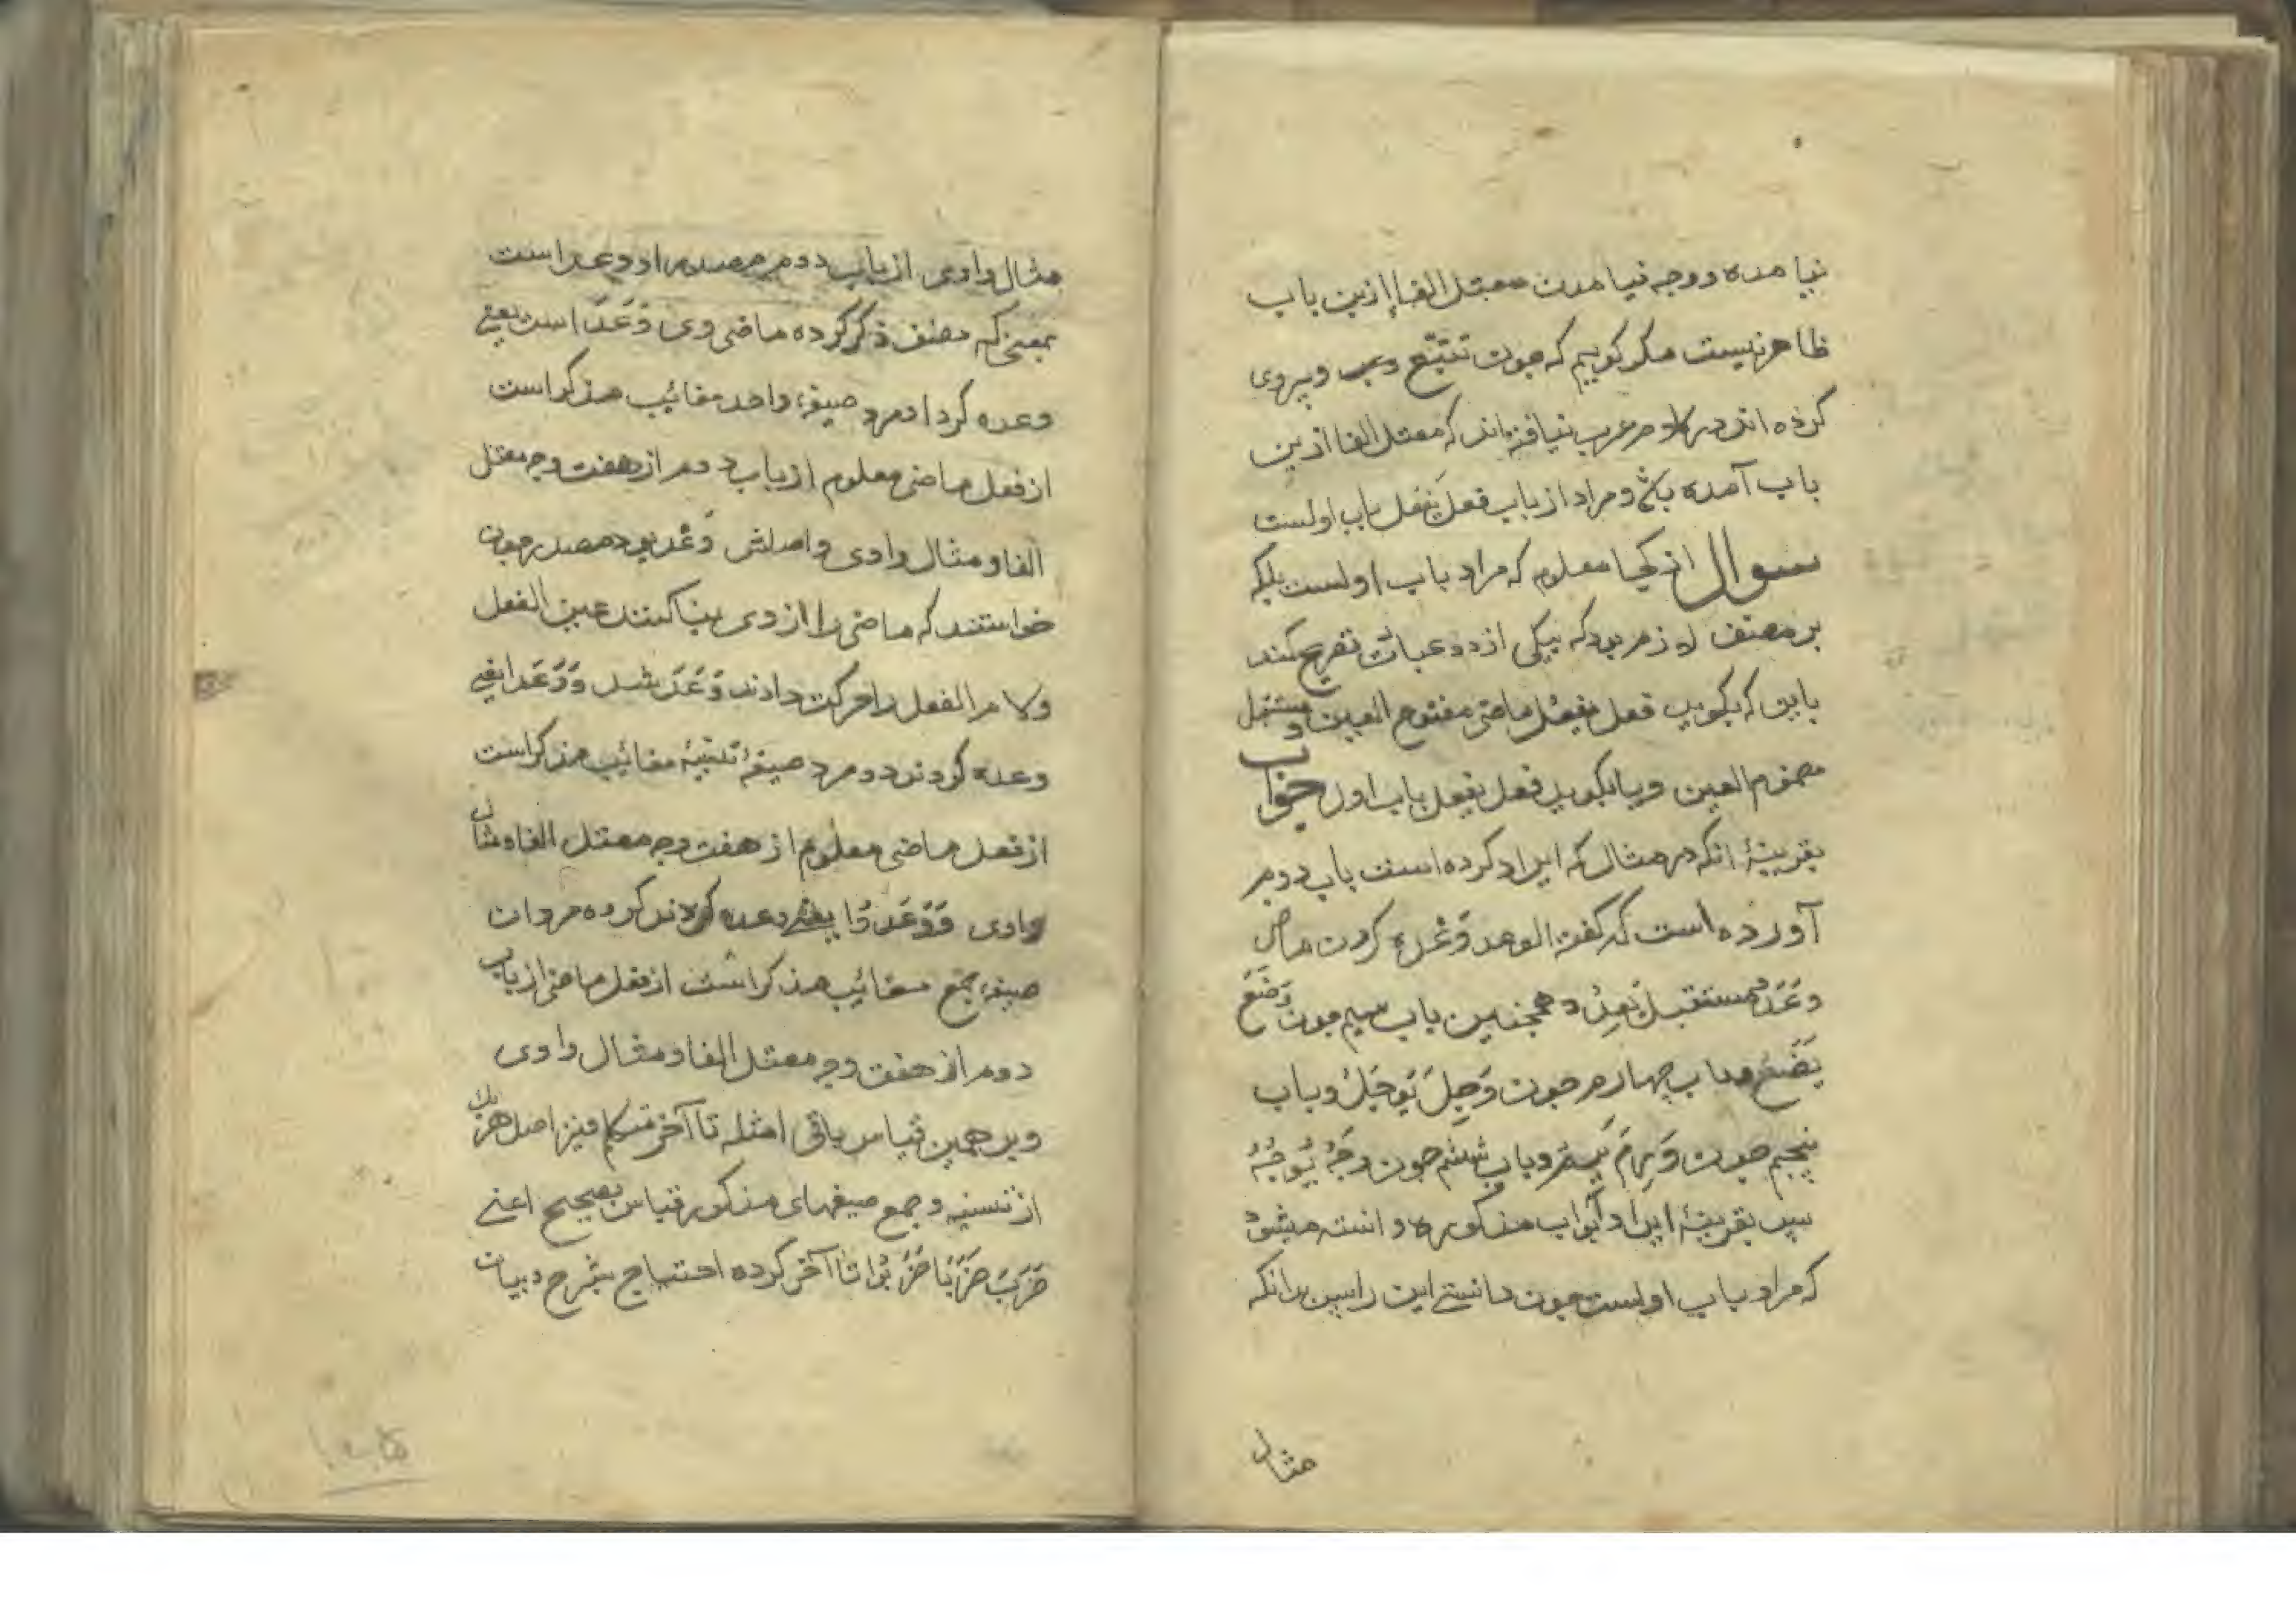 نیامده ووجه نیامدن معتل الفا ازین باب
ظاهر نیست مکر کوییم که چون تتبّع وپیروی
کرده اند در کلام عرب نیافته اند که معتل الفا ازین
باب آمده باشد و مراد از باب فَعَلَ یَفْعُل باب اولست
سوال از کجا معلوم که مراد باب اولست بلکه
بر مصنف لازم بود که بیکی از دو عبارت تصریح کند
باین که بکوید فعل یفعُل ماضی مفتوح العین ومستقبل
مضموم العین ویا بکوید فعل یفعل باب اول جواب
بقرینهٔ انکه در مثال که ایراد کرده است باب دوم
آورده است که کفت الوعد وَعْده کردن ماضی
وَعَدَ ومستقبل یَعِدُ و همچنین باب سیم چون وَضَعَ
یَضَعُ وباب چهارم چون وَجِلَ یَوْجَلُ وباب
پنجم چون وَرِمَ یَرِمُ وباب ششم چون وَجُهَ یَوْجُهُ
پس بقرینهٔ ایراد ابواب مذکوره دانسته میشود
که مراد باب اولست چون دانستی این را پس بدانکه
مثال
مثال واوی از باب دوم مصدر او وعد است
بمعنی که مصنف ذکر کرده ماضی وی وَعَدَ است یعنی
وعده کرد او مرد صیغهٔ واحد مغائیب مذکر است
از فعل ماضی معلوم از باب دوم از هفت وجه معتل
الفا و مثال واوی واصلش وَعْد بود مصدر چون
خواستند که ماضی را از وی بنا کنند عین الفعل
ولام الفعل را حرکت دادند وَعَدَ شد وَوَعَدَا یعنی
وعده کردند دو مرد صیغهٔ تثنیهٔ مغائیب مذکر است
از فعل ماضی معلوم از هفت وجه معتل الفا و مثال
واوی وَوَعَدُوا یعنی وعده کردند کرده مردان
صیغهٔ جمع مغائیب مذکر است از فعل ماضی از باب
دوم از هفت وجه معتل الفا و مثال واوی
وبر همین قیاس باقی امثله تا آخر متکلم ونیز اصل هر یک
از تسنیه و جمع صیغهای مذکور قیاس بصحیح اعنی
ضَرَبَ ضَرَبَا ضَرَبُوا تا آخر کرده احتیاج بشرح وبیان